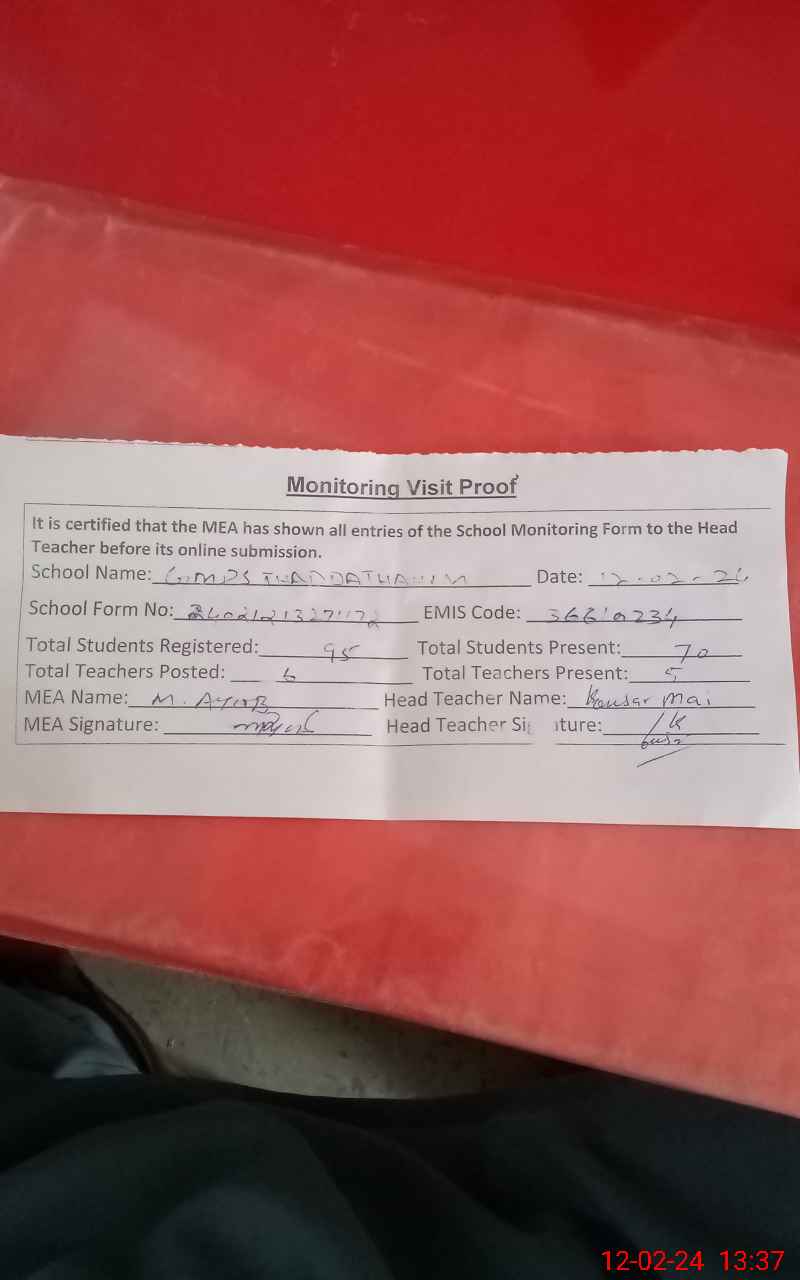 Monitoring Visit Proof
It is certified that the MEA has shown all entries of the School Monitoring Form to the Head
Teacher before its online submission.
School Name: Date: 12-02-24
School Form No: EMIS Code:
Total Students Registered: 95 Total Students Present: 70
Total Teachers Posted: 6 Total Teachers Present: 5
MEA Name: M. AYUB Head Teacher Name: Kousar Mai
MEA Signature: Head Teacher Si ture:
12-02-24 13:37